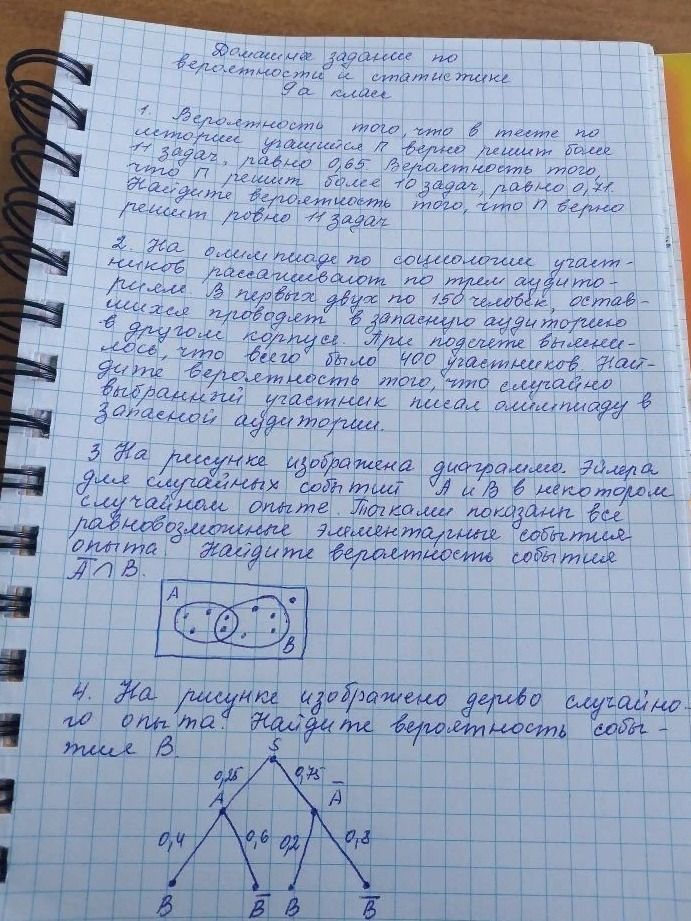 Домашнее задание по
вероятности и статистике
9а класс
1. Вероятность того, что в тесте по
истории учащийся П верно решит более
11 задач, равно 0,65. Вероятность того,
что П решит более 10 задач, равно 0,71.
Найдите вероятность того, что П верно
решит ровно 11 задач
2. На олимпиаде по социологии участ-
ников рассаживают по трем аудито-
риям. В первых двух по 150 человек, остав-
шихся проводят в запасную аудиторию
в другом корпусе. При подсчете выясни-
лось, что всего было 400 участников. Най-
дите вероятность того, что случайно
выбранный участник писал олимпиаду в
запасной аудитории.
3 На рисунке изображена диаграмма Эйлера
для случайных событий A и B в некотором
случайном опыте. Точками показаны все
равновозможные элементарные события
опыта Найдите вероятность события
A̅ ∩ B.
A
B
4. На рисунке изображено дерево случайно-
го опыта. Найдите вероятность собы-
тия B.
S
0,25 0,75
A A̅
0,4 0,6 0,2 0,8
B B̅ B B̅